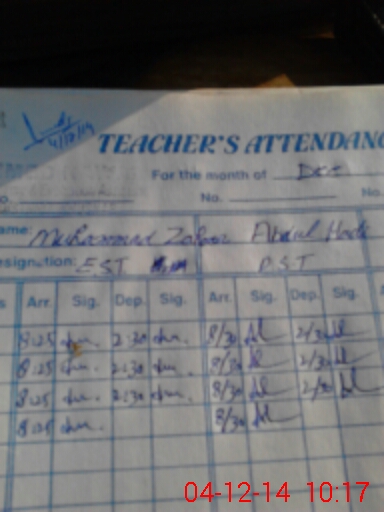 4/12/14
TEACHER'S ATTENDANC
For the month of Dec
No. No.
ame: Muhammad Zahoor Abdul Hadi
esignation: EST P.S.T
s Arr. Sig. Dep. Sig. Arr. Sig. Dep. Sig.
8:25 2:30 8/30 2/30
8:25 2:30 8/30 2/30
8:25 2:30 8/30 2/30
8:25 8/30
04-12-14 10:17